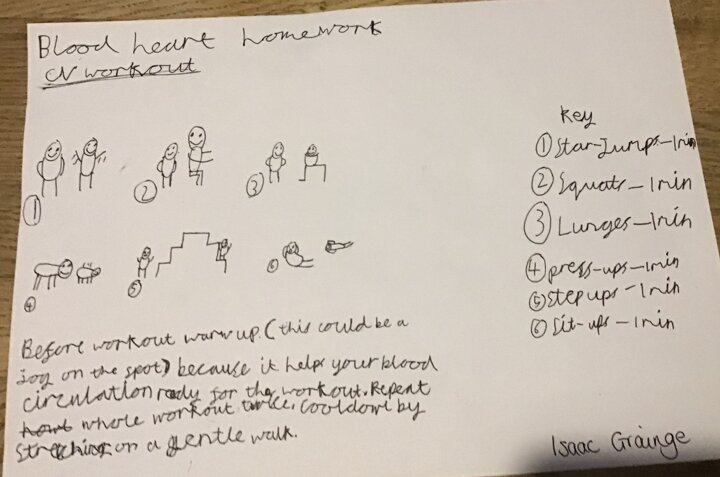 Blood heart homework
CV workout
1
2
3
4
5
6
Key
1 Star-Jumps-1min
2 Squats-1min
3 Lunges-1min
4 press-ups-1min
5 Step ups-1min
6 Sit-ups-1min
Before workout warm up. (this could be a
jog on the spot) because it helps your blood
circulation ready for the workout. Repeat
whole workout twice. Cooldown by
stretching on a gentle walk.
Isaac Grainge